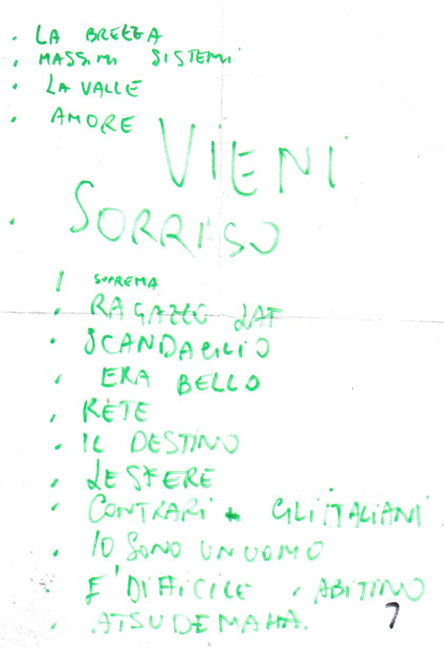 . LA BREZZA
. MASSIMI SISTEMI
. LA VALLE
. AMORE
VIENI
. SORRISO
SUPREMA
. RAGAZZO ZAF
. SCANDAGLIO
. ERA BELLO
. RETE
. IL DESTINO
. LE SFERE
. CONTRARI + GLI ITALIANI
. IO SONO UN UOMO
. E' DIFFICILE . ABITINO
. ATSUDEMAHA.
7